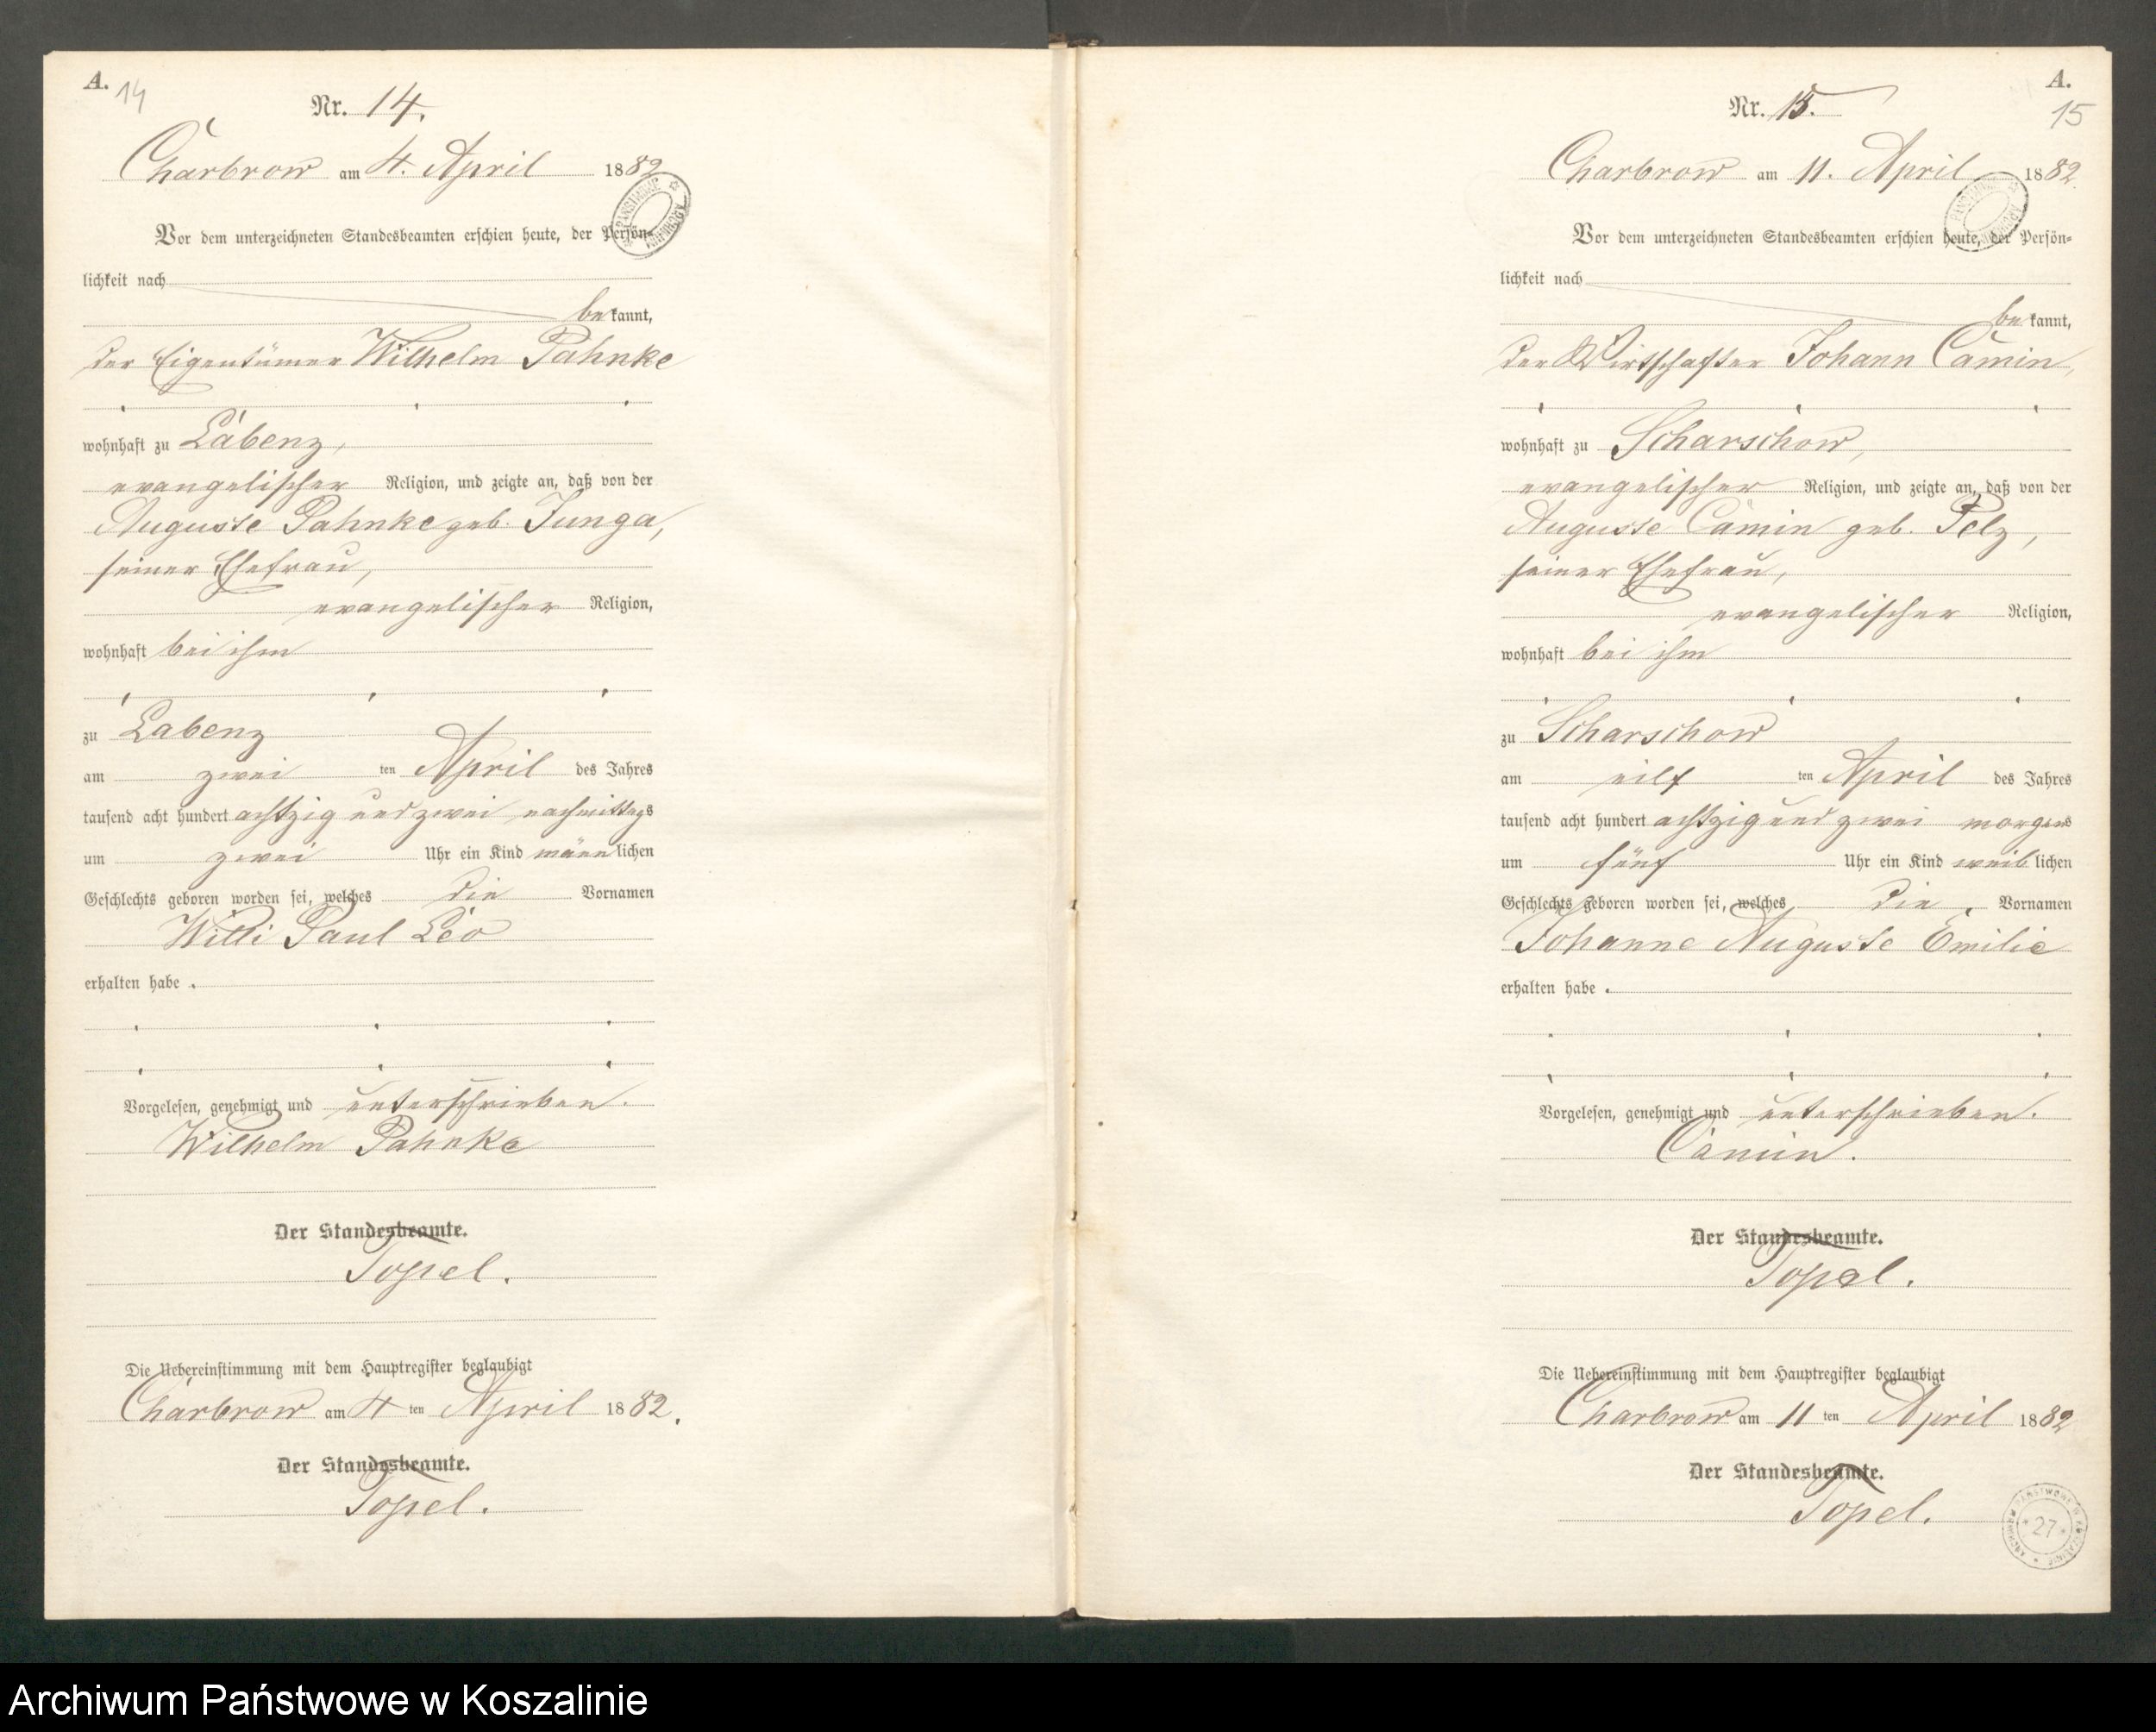 A.
14
Nr. 14.
Charbrow am 4. April 1882
Vor dem unterzeichneten Standesbeamten erschien heute, der Persön-
lichkeit nach
bekannt,
der Eigentümer Wilhelm Pahnke
wohnhaft zu Labenz,
evangelischer Religion, und zeigte an, daß von der
Auguste Pahnke geb. Junga,
seiner Ehefrau,
evangelischer Religion,
wohnhaft bei ihm
zu Labenz
am zwei ten April des Jahres
tausend acht hundert achtzig und zwei nachmittags
um zwei Uhr ein Kind männlichen
Geschlechts geboren worden sei, welches die Vornamen
Willi Paul Leo
erhalten habe.
Vorgelesen, genehmigt und unterschrieben.
Wilhelm Pahnke
Der Standesbeamte.
Topel.
Die Uebereinstimmung mit dem Hauptregister beglaubigt
Charbrow am 4 ten April 1882.
Der Standesbeamte.
Topel.
A.
15
Nr. 15.
Charbrow am 11. April 1882.
Vor dem unterzeichneten Standesbeamten erschien heute, der Persön-
lichkeit nach
bekannt,
der Wirtschafter Johann Camin,
wohnhaft zu Scharschow,
evangelischer Religion, und zeigte an, daß von der
Auguste Camin geb. Pelz,
seiner Ehefrau,
evangelischer Religion,
wohnhaft bei ihm
zu Scharschow
am eilf ten April des Jahres
tausend acht hundert achtzig und zwei morgens
um fünf Uhr ein Kind weiblichen
Geschlechts geboren worden sei, welches die Vornamen
Johanne Auguste Emilie
erhalten habe.
Vorgelesen, genehmigt und unterschrieben.
Camin.
Der Standesbeamte.
Topel.
Die Uebereinstimmung mit dem Hauptregister beglaubigt
Charbrow am 11 ten April 1882
Der Standesbeamte.
Topel.
27
Archiwum Państwowe w Koszalinie